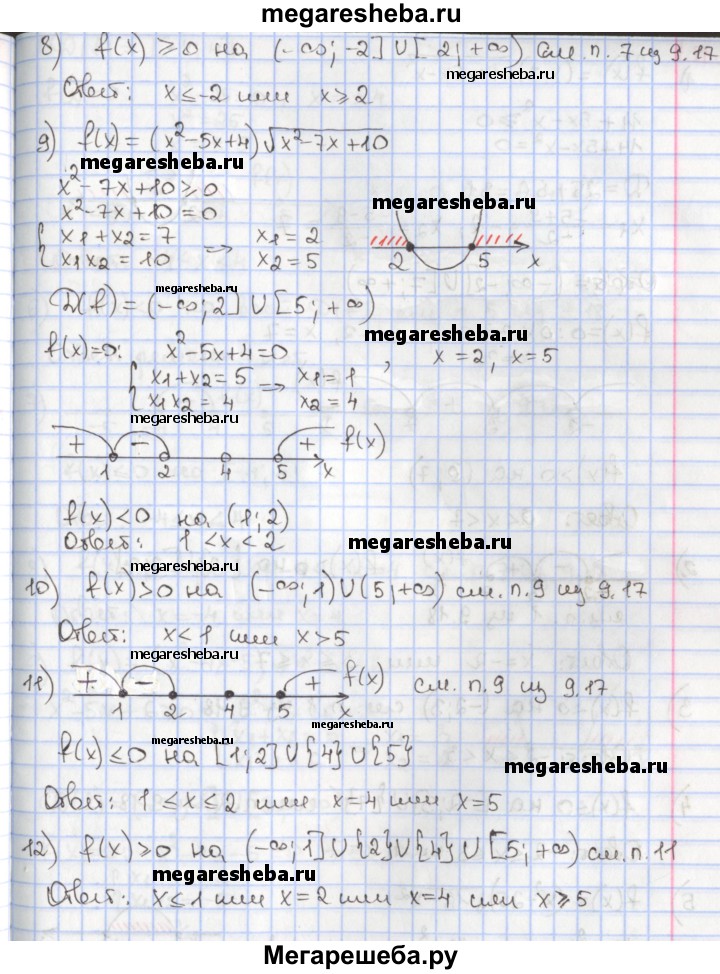 megaresheba.ru
8) f(x) ≥ 0 на (-∞; -2] ∪ [2; +∞) см. п. 7 из 9.17
megaresheba.ru
Ответ: x ≤ -2 или x ≥ 2
9) f(x) = (x²-5x+4)√x²-7x+10
megaresheba.ru
x²-7x+10 ≥ 0
x²-7x+10 = 0
{ x1+x2=7 => x1=2
x1x2=10 x2=5
2 5 x
megaresheba.ru
D(f) = (-∞; 2] ∪ [5; +∞)
megaresheba.ru
f(x)=0: x²-5x+4=0, x=2, x=5
{ x1+x2=5 => x1=1
x1x2=4 x2=4
megaresheba.ru
+ - + f(x)
1 2 4 5 x
f(x)<0 на (1; 2)
Ответ: 1<x<2
megaresheba.ru
megaresheba.ru
10) f(x)>0 на (-∞; 1) ∪ (5; +∞) см. п. 9 из 9.17
Ответ: x<1 или x>5
megaresheba.ru
11) + - + f(x) см. п. 9 из 9.17
1 2 4 5 x
megaresheba.ru
megaresheba.ru
f(x) ≤ 0 на [1; 2] ∪ {4} ∪ {5}
megaresheba.ru
Ответ: 1 ≤ x ≤ 2 или x=4 или x=5
megaresheba.ru
12) f(x) ≥ 0 на (-∞; 1] ∪ {2} ∪ {4} ∪ [5; +∞) см. п. 11
megaresheba.ru
Ответ: x ≤ 1 или x=2 или x=4 или x ≥ 5
Мегарешеба.ру